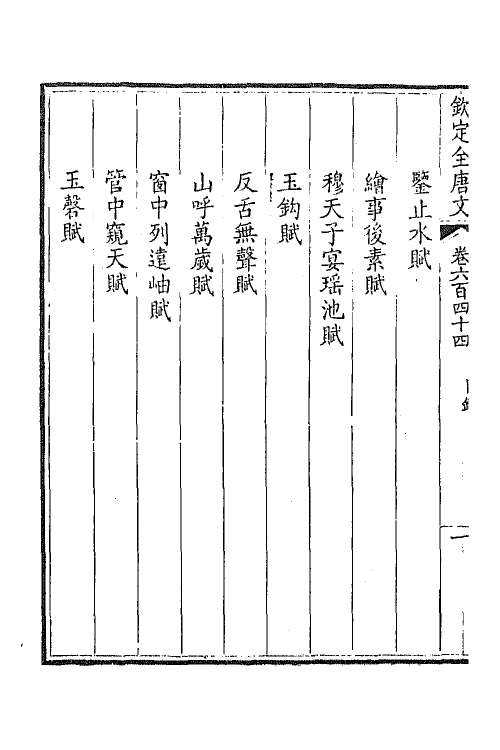 欽定全唐文 卷六百四十四 目錄 一
鑒止水賦
繪事後素賦
穆天子宴瑶池賦
玉鈎賦
反舌無聲賦
山呼萬歲賦
窗中列遠岫賦
管中窺天賦
玉磬賦